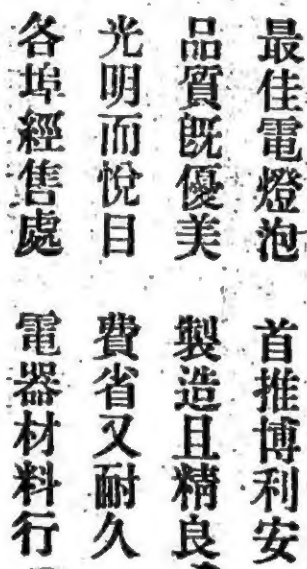 最佳電燈泡 首推博利安
品質既優美 製造且精良
光明而悅目 費省又耐久
各埠經售處 電器材料行